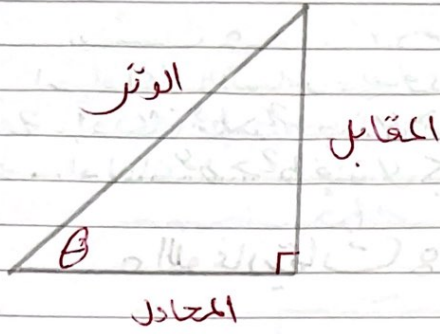 الوتر
المقابل
θ
المجادل